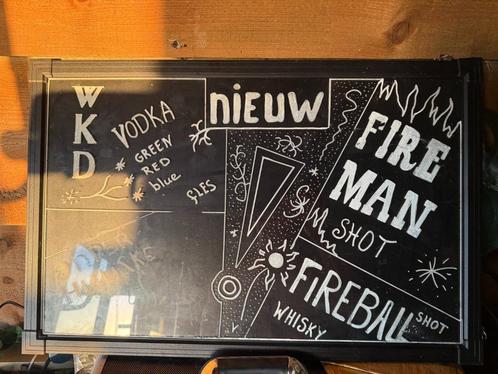 WKD
VODKA
GREEN
RED
blue
NIEUW
FIRE
MAN
SHOT
FIREBALL
SHOT
WHISKY